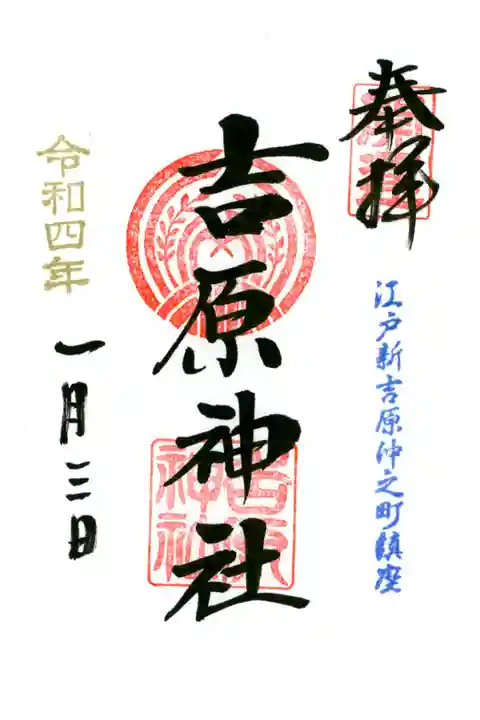 奉拝
江戸新吉原仲之町鎮座
吉原神社
吉原神社
令和四年
一月三日